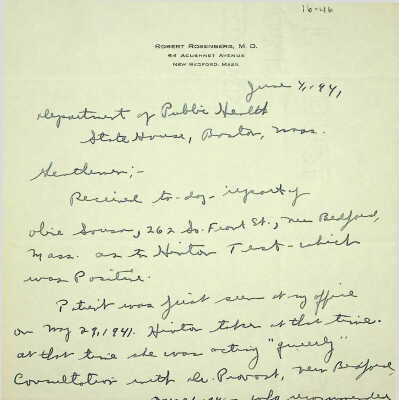 16-46
ROBERT ROSENBERG, M. D.
64 ACUSHNET AVENUE
NEW BEDFORD, MASS.
June 4, 1941
Department of Public Health
State House, Boston, Mass.
Gentlemen;-
Received to-day report of
Sousa, 262 So. Front St., New Bedford,
Mass. as to Hinton Test - which
was Positive.
Patient was first seen at my office
on May 29, 1941. Hinton taken at that time.
at that time she was acting "queerly"
Consultation with Dr. Provost, New Bedford,
who recommended